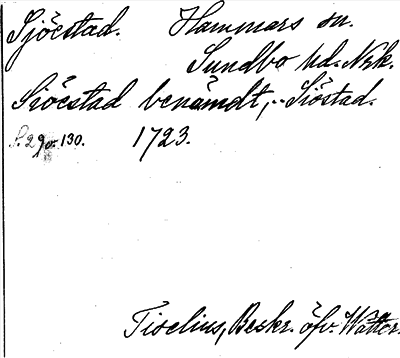 Sjöestad. Hammars sn.
Sundbo hd. Nrk.
Siöestad benämdt, .. Siöstad.
S. 29 o. 130. 1723.
Tiselius, Beskr. öfv. Wätter.